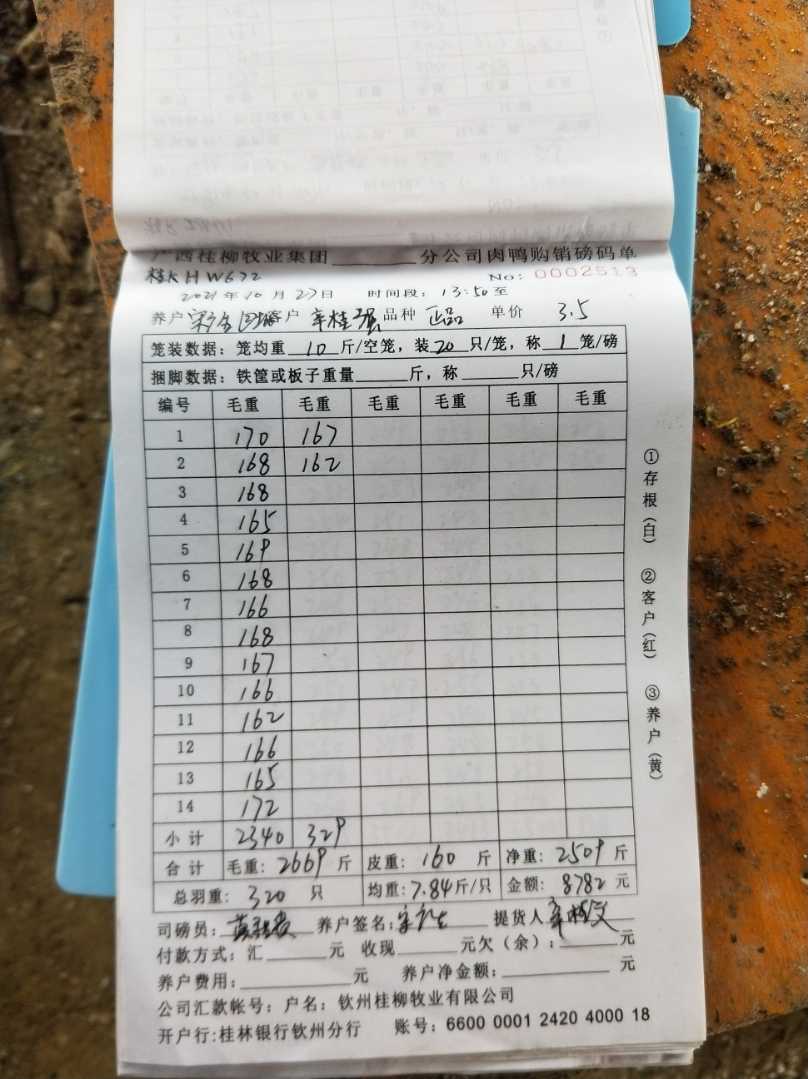 广西桂柳牧业集团______分公司肉鸭购销磅码单
HW672 No: 0002513
2021年10月27日 时间段: 13:50至
养户 客户 辛桂强 品种 正品 单价 3.5
笼装数据: 笼均重 10 斤/空笼, 装 20 只/笼, 称 1 笼/磅
捆脚数据: 铁筐或板子重量______斤, 称______只/磅
编号 毛重 毛重 毛重 毛重 毛重 毛重
1 170 167
2 168 162
3 168
4 165
5 169
6 168
7 166
8 168
9 167
10 166
11 162
12 166
13 165
14 172
小计 2340 329
合计 毛重: 2669 斤 皮重: 160 斤 净重: 2509 斤
总羽重: 320 只 均重: 7.84 斤/只 金额: 8782 元
司磅员: 养户签名: 提货人
付款方式: 汇______元 收现______元欠(余): ______元
养户费用: ______元 养户净金额: ______元
公司汇款帐号: 户名: 钦州桂柳牧业有限公司
开户行:桂林银行钦州分行 账号: 6600 0001 2420 4000 18
①存根(白) ②客户(红) ③养户(黄)